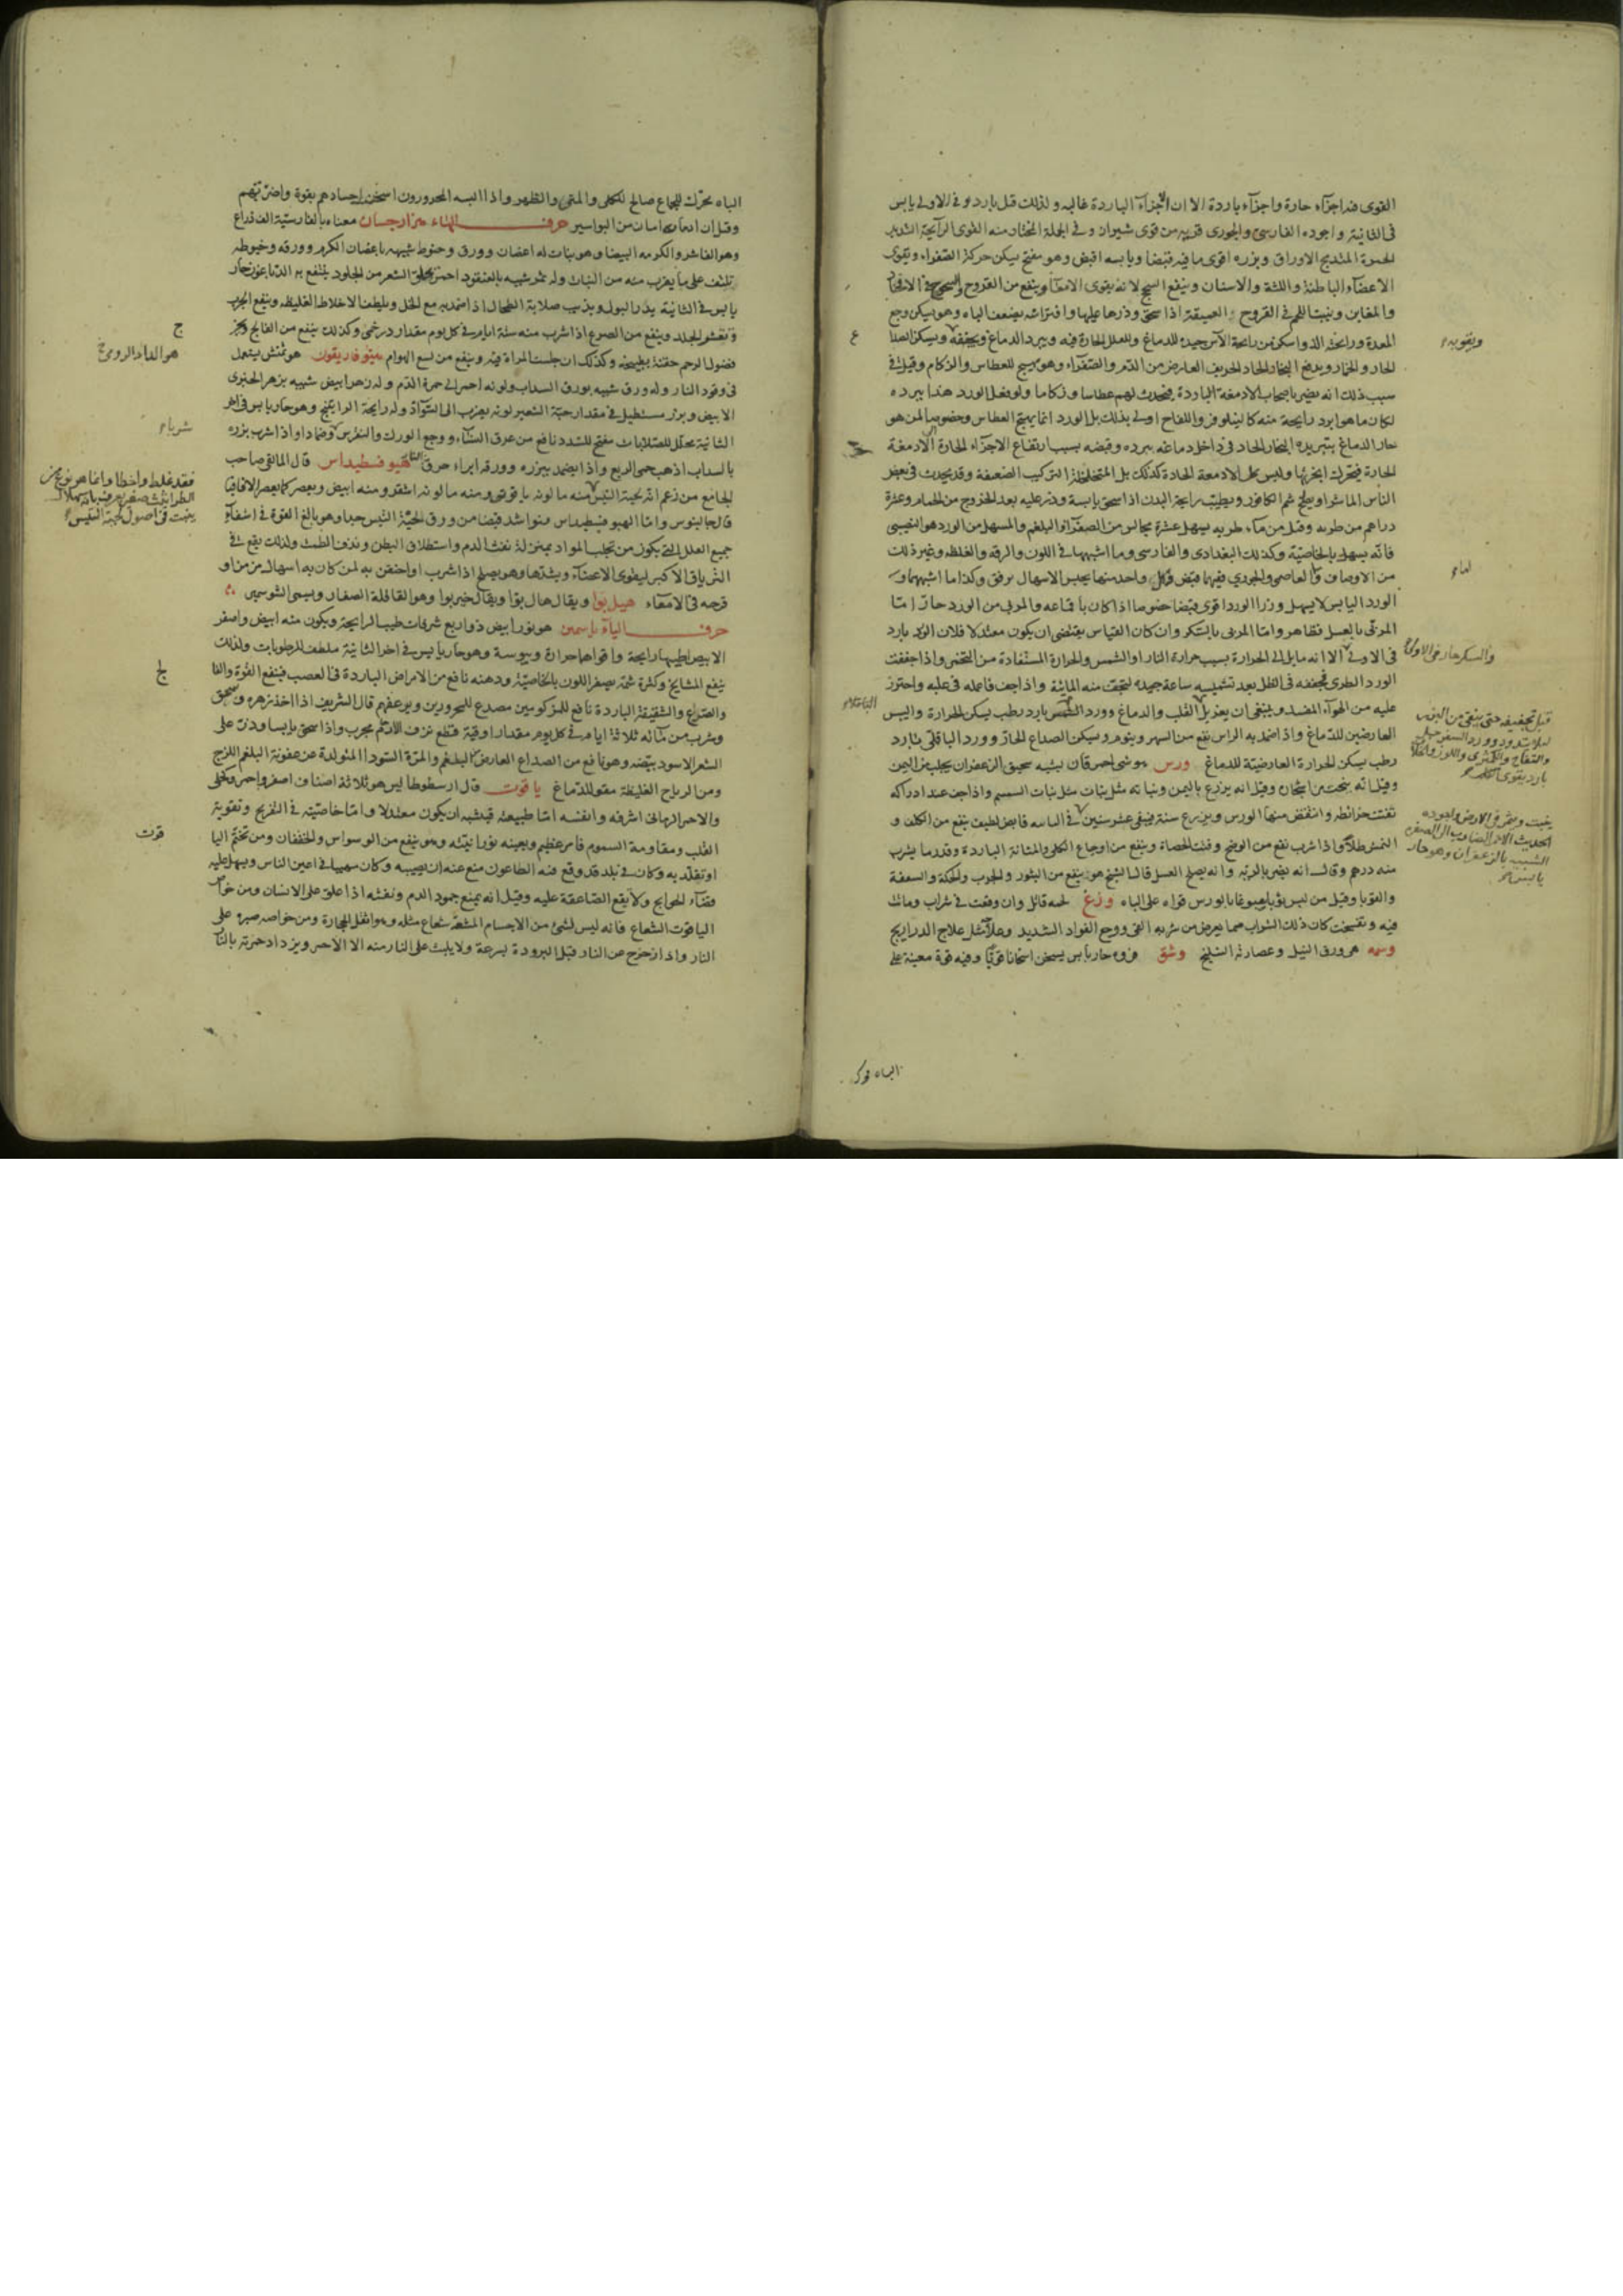 القوى فيه اجزاء حارة واجزاء باردة الا ان الاجزاء الباردة غالبه ولذلك قيل بارد فى الاولى يابس
فى الثانية واجوده الفارسى والجورى قريب من قوى شيروان وفى الجملة المختار منه القوى الرائحة الشديد
الحمرة المندمج الاوراق وبزره اقوى ما فيه قبضا ويابسه اقبض وهو مفتح يسكن حركة الصفراء ويقوى
الاعضاء الباطنة واللثة والاسنان وينفع السحج لانه يقوى الامعاء وينفع من القروح والسحوج فى الافخاذ
والمغابن وينبت اللحم فى القروح العميقة اذا سحق وذر عليها وافتراشه يضعف الباه وهو يسكن وجع
المعدة ورائحته
الحار والخمار ويدفع البخار الحاد الحريف العارض من الدم والصفراء وهو مهيج للعطاس والزكام وقيل فى
سبب ذلك انه يضر باصحاب الادمغة الباردة فيحدث لهم عطاسا وزكاما ولو فعل الورد هذا ببرده
لكان ما هو ابرد رايحة منه كالنيلوفر واللفاح اولى بذلك بل الورد انما يهيج العطاس وخصوصا لمن هو
حار الدماغ بتبريده البخار الحاد فى داخل دماغه ببرده وقبضه بسبب ارتفاع الاجزاء الحارة الادمغة
الحارة فيتحرك ابخرتها وليس كل الادمغة الحادة كذلك بل المتخلخلة التركيب الضعيفة وقد يحدث فى بعض
الناس الماشرا ويصلح شم الكافور ويطيب رايحة البدن اذا سحق يابسه وذر عليه بعد الخروج من الحمام وعشرة
دراهم من طريه وقيل من ماء طريه يسهل عشرة مجالس من الصفراء والبلغم والمسهل من الورد هو النصيبى
فانه يسهل بالخاصية وكذلك البغدادى والفارسى وما اشبهها فى اللون والرقة والغلظ وغير ذلك
من الاوصاف واما العاصمى والجورى ففيهما قبض وكل واحد منهما يحبس الاسهال برفق وكذا ما اشبههما و
الورد اليابس لا يسهل وزر الورد اقوى قبضا خصوصا اذا كان باقماعه والمربى من الورد حار اما
المربى بالعسل فظاهر واما المربى بالسكر وان كان القياس يقتضى ان يكون معتدلا فلان الورد بارد
فى الاولى الا انه مايل الى الحرارة بسبب حرارة النار او الشمس والحرارة المستفادة من التخمر واذا جففت
الورد الطرى فجففه فى الظل بعد تشميسه ساعة جيده ليخف منه المائية واذا جف فاجعله فى علبه واحترز
عليه من الهواء المفسد وينبغى ان القلب والدماغ وورد بارد رطب يسكن الحرارة واليبس
العارضين للدماغ واذا ضمد به الراس نفع من السهر وينوم ويسكن الصداع الحار وورد الباقلى بارد
رطب يسكن الحرارة العارضية للدماغ ورس هو شى احمر قان يشبه سحيق الزعفران يجلب من اليمن
وقيل انه ينحت من اشجار وقيل انه يزرع باليمن ونباته مثل نبات السمسم واذا جف عند ادراكه
تفتت خرائطه وانتفض منها الورس ويزرع سنة فيبقى عشر سنين فى قابض لطيف ينفع من الكلف و
النمش طلاء واذا شرب نفع من الوضح وفتت الحصاة وينفع من اوجاع الكلى والمثانة الباردة وقدر ما يشرب
منه درهم وقالوا انه يضر بالرئة وانه يصلحه العسل قال الشيخ هو ينفع من البثور والجرب والحكة والسعفة
والقوبا وقيل من لبس ثوبا مصبوغا بالورس قواه على الباه وزغ لحمه قاتل وان وقعت فى شراب وماتت
فيه وتفسخت كان ذلك الشراب سما يعرض من شربه القى ووجع الفؤاد الشديد وعلاجه مثل علاج الدراريح
وسمه هى ورق النيل وعصارته النيلج وشق فروه حار يابس يسخن اسخانا قويا وفيه قوة معينة على
ويقويه
ع
والسكر حار فى الاولى
قبل تجفيفه حتى ينقى من البزر
والتفاح والكمثرى واللوز
بارد يقوى القلب
ينبت ويفرش فى الارض واجوده
الحديث الاحمر الضارب الى الصفره
الشبيه بالزعفران وهو حار
يابس
الباه محرك
الباه محرك للجماع صالح للكلى والمتن والظهر واذا البسه المحرورون اسخن اجسادهم بقوة واضر بهم
وقيل ان ادمان امان من البواسير حرف الهاء هزارجسان معناه بالفارسية الف ذراع
وهو الفاشرا والكرمه البيضا وهو نبات له اغصان وورق وخيوط شبيه باغصان الكرم وورقه وخيوطه
تلتف على ما يقرب منه من النبات وله ثمر شبيه بالعنقود احمر يحلق الشعر من الجلود ينتفع به الدباغون حار
يابس فى الثانية يدر البول ويذيب صلابة الطحال اذا ضمد به مع الخل ويلطف الاخلاط الغليظه وينفع الجرب
وتقشر الجلد وينفع من الصرع اذا شرب منه ستة ايام فى كل يوم مقدار درخمى وكذلك ينفع من الفالج ويخرج
فضول الرحم حقنة بطبيخه وكذلك ان جلست المراة فيه وينفع من لسع الهوام هيوفاريقون هو تمنش يستعمل
فى وقود النار وله ورق شبيه بورق السداب ولونه احمر الى حمرة الدم وله زهر ابيض شبيه بزهر الخيرى
الابيض وبزر مستطيل فى مقدار حبة الشعير لونه يضرب الى السواد وله رايحة الراتينج وهو حار يابس فى اخر
الثانية محلل للصلابات مفتح للسدد نافع من عرق النساء ووجع الورك والنقرس وضمادا واذا شرب بزره
بالسداب اذهب حمى الربع واذا تضمد ببزره وورقه ابراء حرق النار هيوفسطيداس قال المالقى صاحب
الجامع من زعم انه لحية التيس منه ما لونه ياقوتى ومنه ما لونه اشقر ومنه ابيض ويعصر كما يعصر الاقاقيا
قال جالينوس واما الهيوفسطيداس فهو اشد قبضا من ورق لحية التيس جدا وهو بالغ القوة فى اشفاء
جميع العلل التى يكون من تجلب المواد بمنزلة نفث الدم واستطلاق البطن ونزف الطمث ولذلك يقع فى
الترياق الاكبر ليقوى الاعضاء ويشدها وهو يصلح اذا شرب او احتقن به لمن كان به اسهال مزمن او
قرحه فى الامعاء هيل بوا ويقال هال بوا ويقال خير بوا وهو القاقلة الصغار ويسمى الشوسمير
حرف الياء ياسمين هو نور ابيض ذو اربع شرفات طيب الرايحة ويكون منه ابيض واصفر
الابيض اطيبها رايحة واقواها حرارة ويبوسة وهو حار يابس فى اخر الثانية ملطف للرطوبات ولذلك
ينفع المشايخ وكثرة شمه يصفر اللون بالخاصية ودهنه نافع من الامراض الباردة فى العصب فينفع اللقوة والفالج
والصداع والشقيقة الباردة نافع للمزكومين مصدع للمحرورين ويرعفهم قال الشريف اذا اخذ زهره وسحق
وشرب من مائه ثلاثة ايام فى كل يوم مقدار اوقية قطع نزف الارحام مجرب واذا سحق يابسا وذر على
الشعر الاسود بيضه وهو نافع من الصداع العارض للبلغم والمرة السودا المتولدة عن عفونة البلغم اللزج
ومن الرياح الغليظة مقو للدماغ ياقوت قال ارسطوطاليس هو ثلاثة اصناف اصفر واحمر وكحلى
والاحمر الرمانى اشرفه وانفسه اما طبيعته فيشبه ان يكون معتدلا واما خاصيته فى التفريح وتقوية
القلب ومقاومة السموم فامر عظيم ويعينه نورانيته وهو ينفع من الوسواس والخفقان ومن تختم
او تقلد به وكان فى بلد قد وقع فيه الطاعون منع عنه ان يصيبه وكان مهيبا فى اعين الناس ويسهل عليه
قضاء الحوايج ولا يقع الصاعقة عليه وقيل انه يمنع جمود الدم ونفثه اذا علق على الانسان ومن خواص
الياقوت الشعاع فانه ليس لشئ من الاجسام المشعة شعاع مثله وهو اثقل الحجارة ومن خواصه صبره على
النار واذا اخرج عن النار قبل البرودة بسرعة ولا يلبث على النار منه الا الاحمر ويزداد حمرته بالنار
ج
هو الفاد الرومى
شربا
فقد غلط واخطا وانما هو نوع من
الطراثيث
ينبت فى اصول لحية التيس
لج
قوت